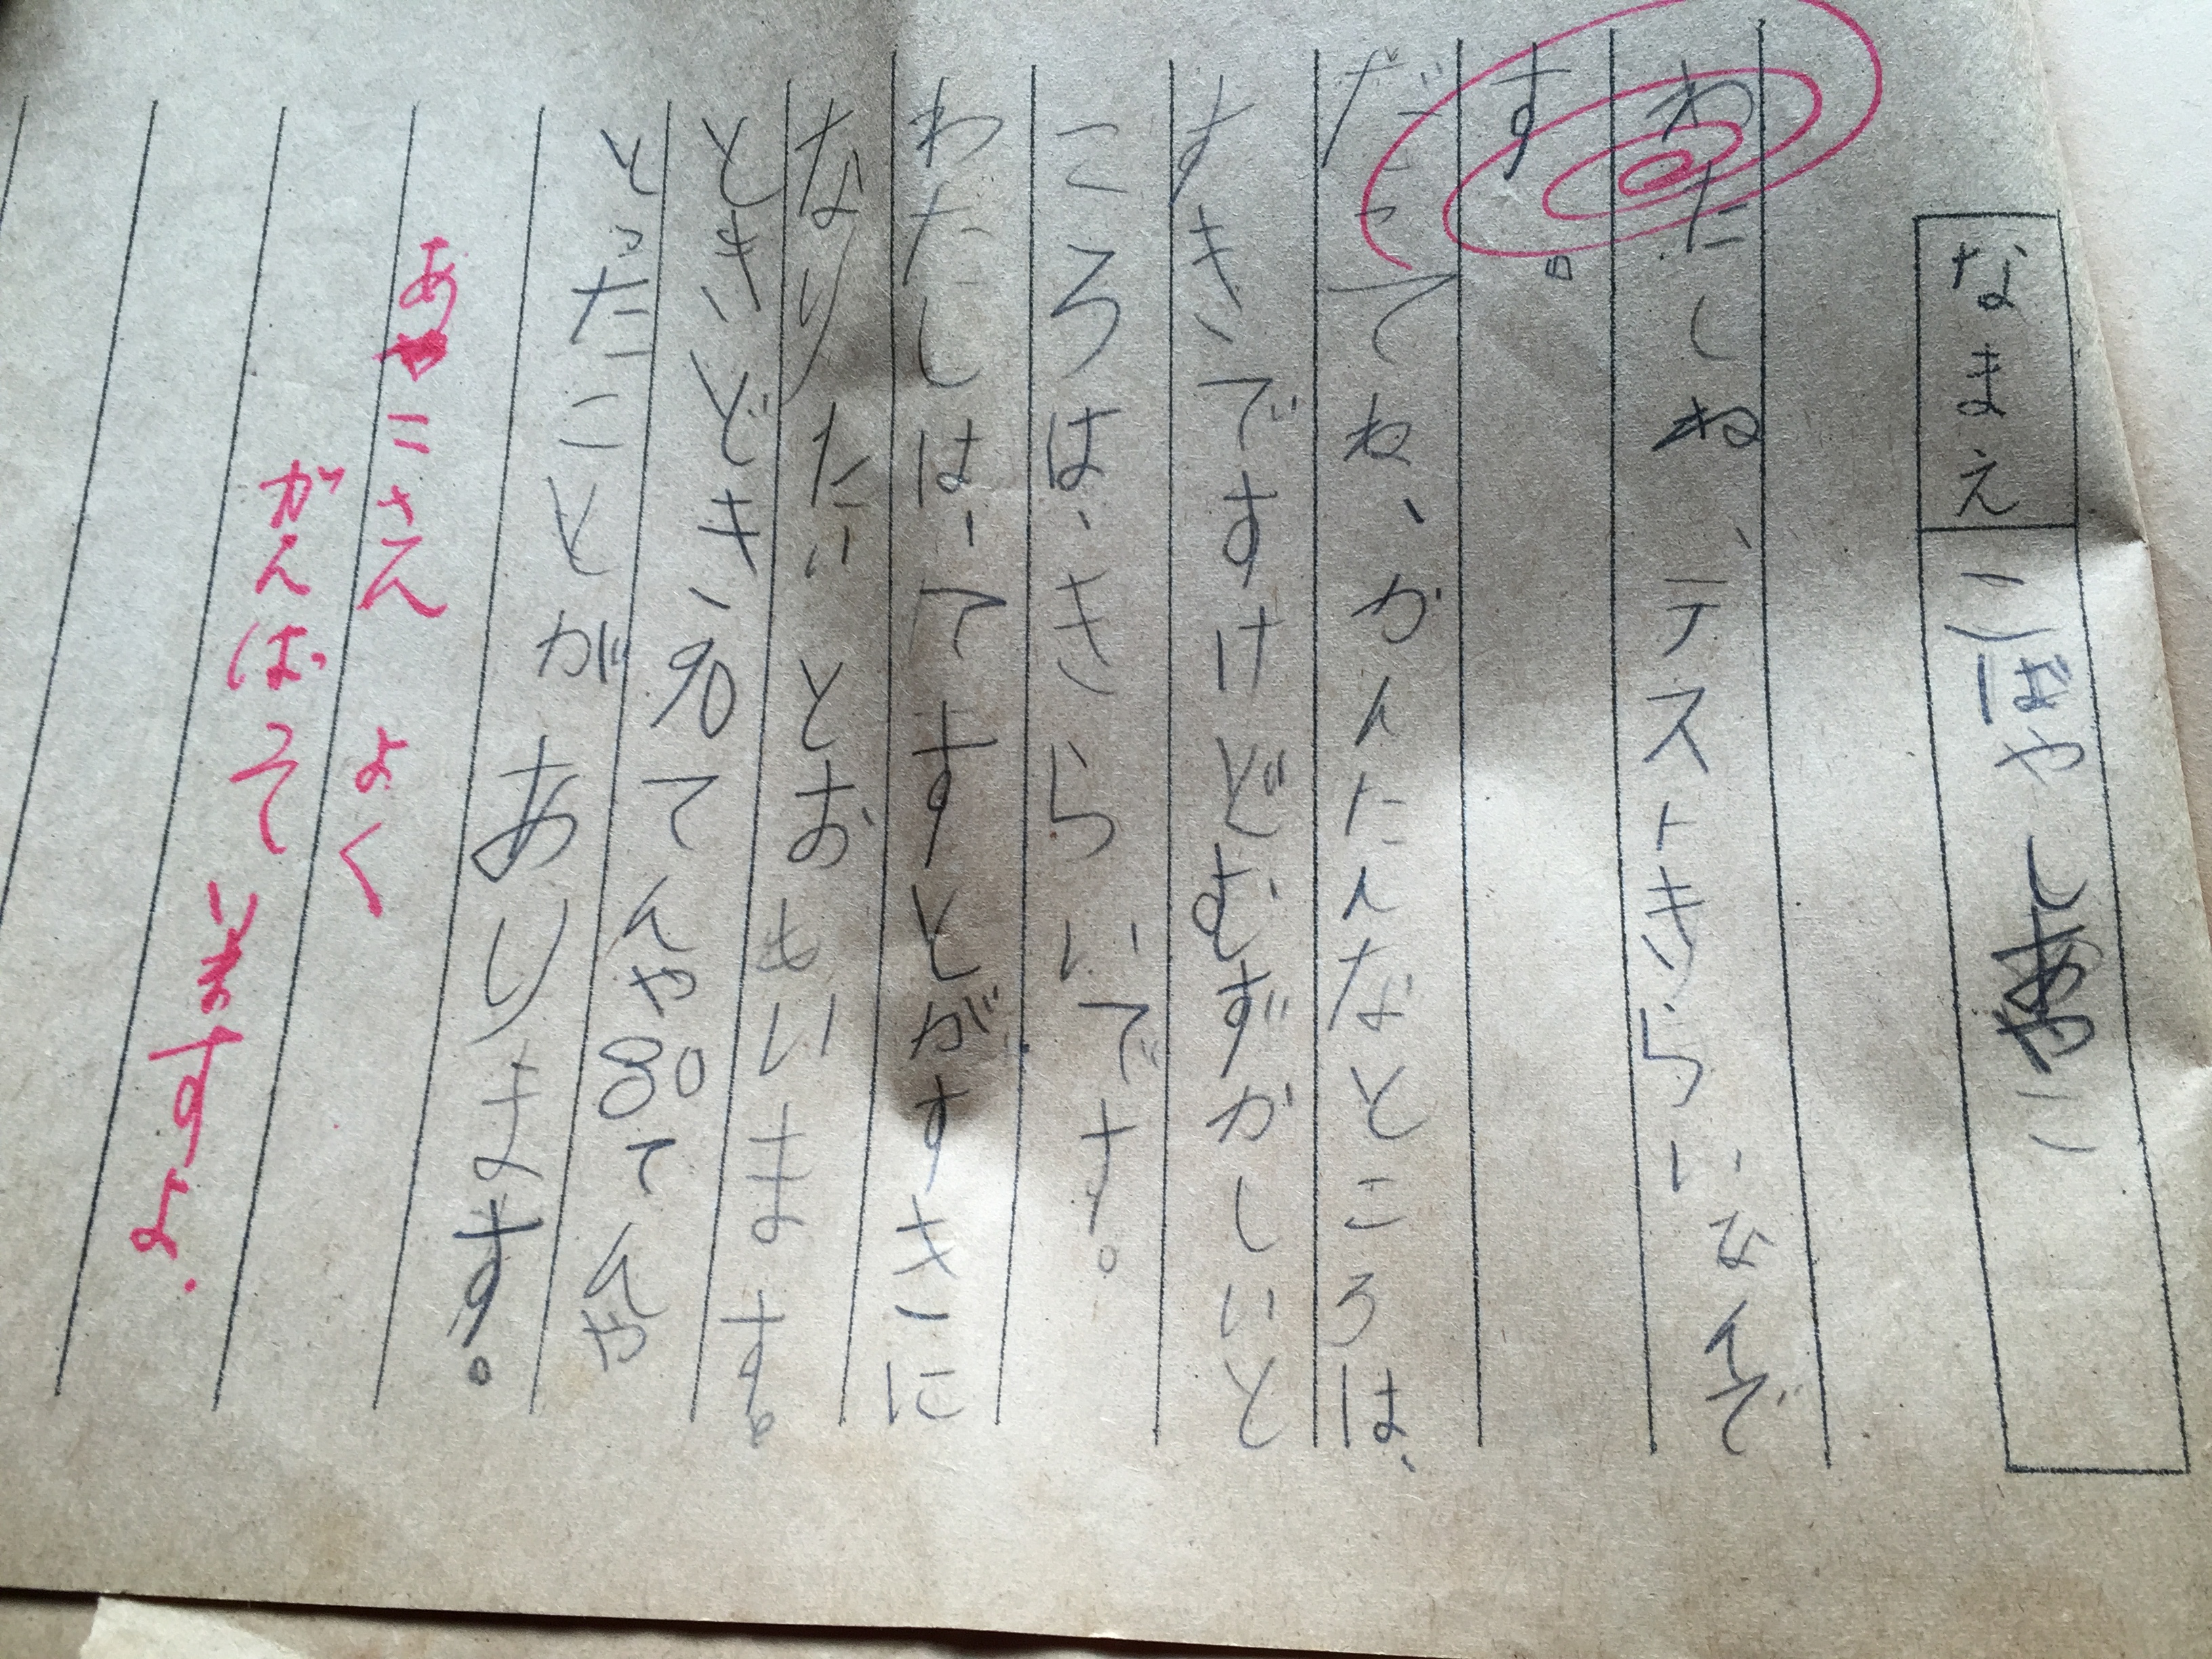 なまえ こばやしあやこ
わたしね、テストきらいなんで
す。
だってね、かんたんなところは、
すきですけどむずかしいと
ころは、きらいです。
わたしは、てすとがすきに
なりたいとおもいます。
ときどき、90てんや80てんや
とったことがあります。
あやこさん よく
がんばっていますよ.